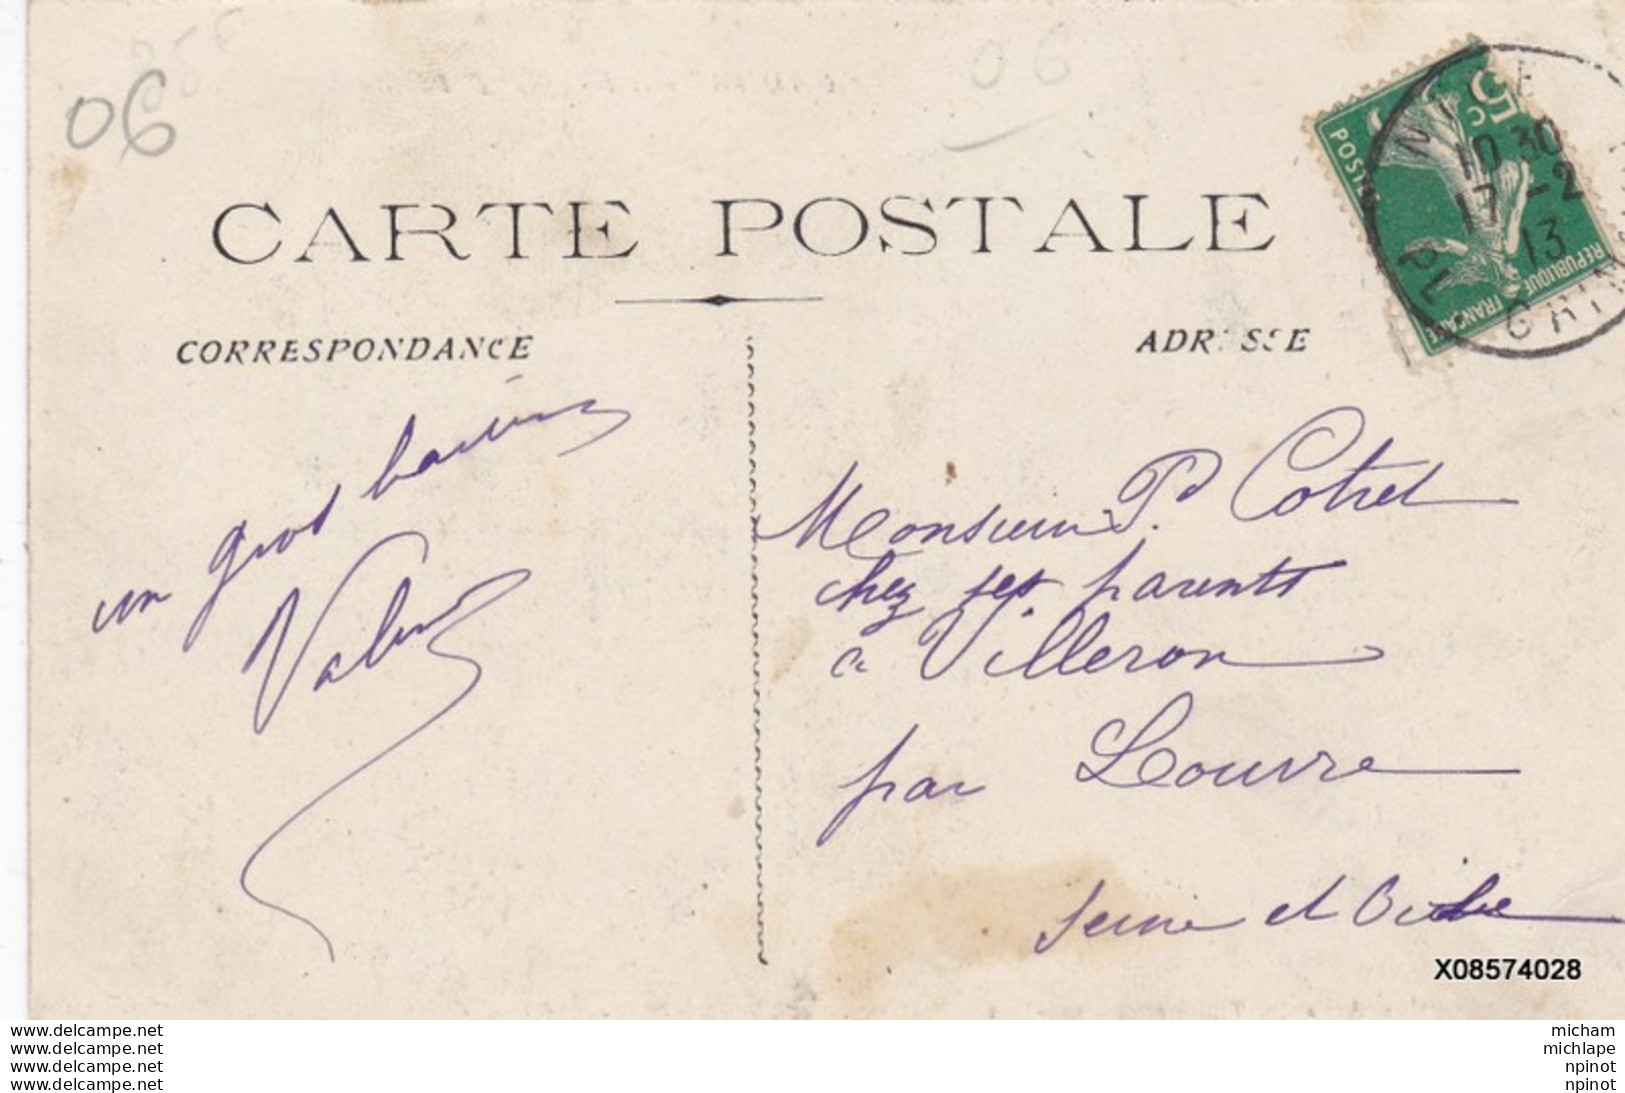 06
06
CARTE POSTALE
CORRESPONDANCE
ADRESSE
5c
POSTE
REPUBLIQUE
FRANÇAISE
NICE
10 30
17 - 2
13
PL. GRIM
un gros
Monsieur P. Cotret
chez ses parents
à Villeron
par Louvre
Seine et Oise
X08574028
www.delcampe.net
www.delcampe.net
www.delcampe.net
www.delcampe.net
micham
michlape
npinot
npinot